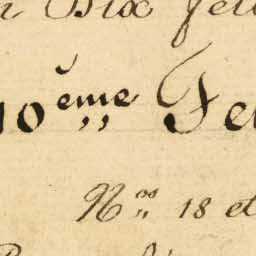 Dix feu
10ème Feu
Nos 18 et